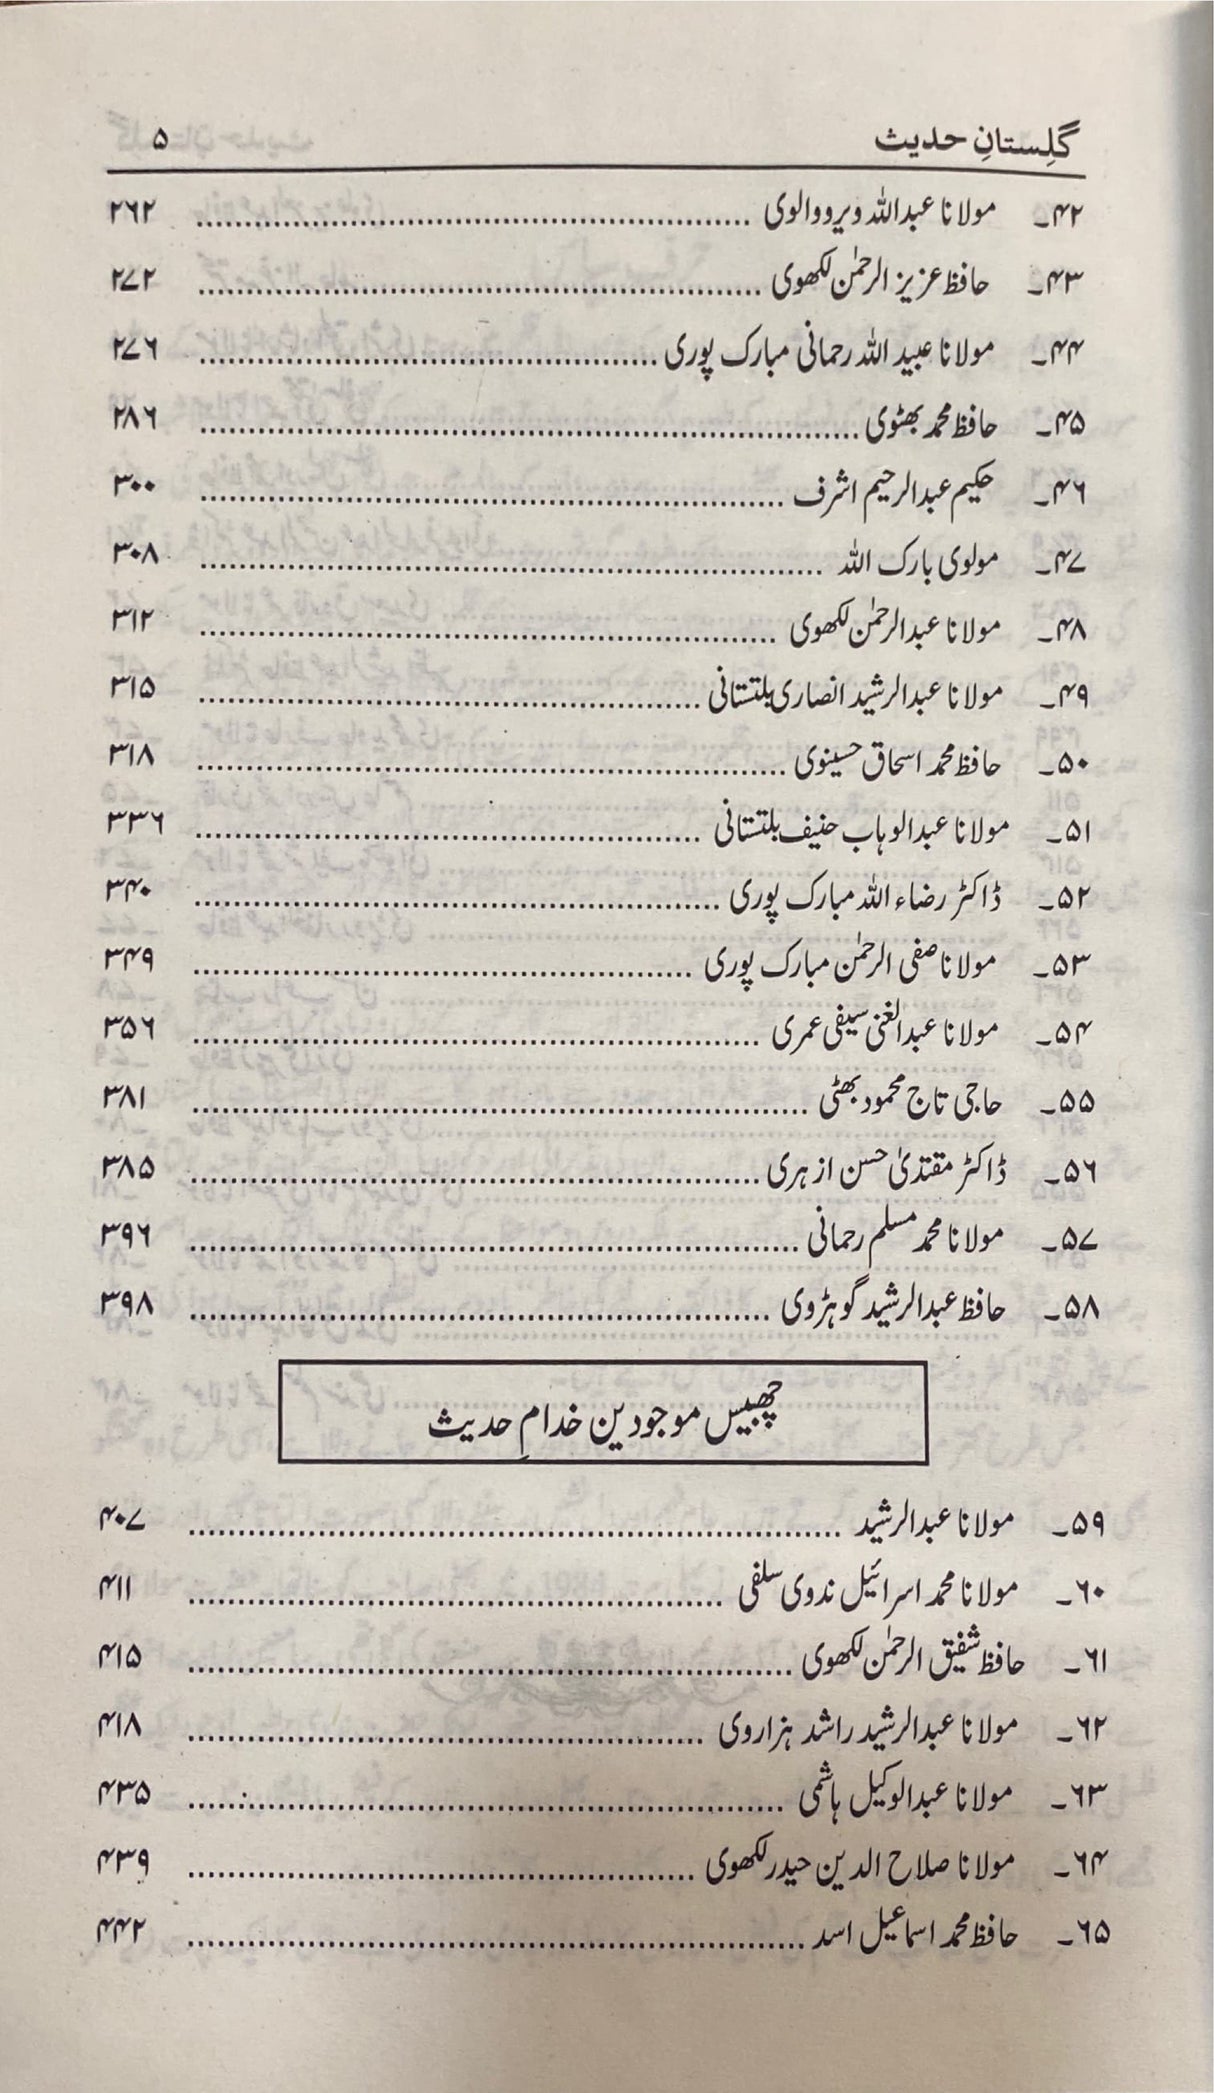 گلِستانِ حدیث ۵
۴۲۔ مولانا عبداللہ ویرووالوی ........ ۲۶۲
۴۳۔ حافظ عزیز الرحمٰن لکھوی ........ ۲۷۲
۴۴۔ مولانا عبید اللہ رحمانی مبارک پوری ........ ۲۷۶
۴۵۔ حافظ محمد بھٹوی ........ ۲۸۶
۴۶۔ حکیم عبدالرحیم اشرف ........ ۳۰۰
۴۷۔ مولوی بارک اللہ ........ ۳۰۸
۴۸۔ مولانا عبدالرحمٰن لکھوی ........ ۳۱۲
۴۹۔ مولانا عبدالرشید انصاری بلتستانی ........ ۳۱۵
۵۰۔ حافظ محمد اسحاق حسینوی ........ ۳۱۸
۵۱۔ مولانا عبدالوہاب حنیف بلتستانی ........ ۳۳۶
۵۲۔ ڈاکٹر رضاء اللہ مبارک پوری ........ ۳۴۰
۵۳۔ مولانا صفی الرحمٰن مبارک پوری ........ ۳۴۹
۵۴۔ مولانا عبدالغنی سیفی عمری ........ ۳۵۶
۵۵۔ حاجی تاج محمود بھٹی ........ ۳۸۱
۵۶۔ ڈاکٹر مقتدیٰ حسن ازہری ........ ۳۸۵
۵۷۔ مولانا محمد مسلم رحمانی ........ ۳۹۶
۵۸۔ حافظ عبدالرشید گوہڑوی ........ ۳۹۸
چھبیس موجودین خدامِ حدیث
۵۹۔ مولانا عبدالرشید ........ ۴۰۷
۶۰۔ مولانا محمد اسرائیل ندوی سلفی ........ ۴۱۱
۶۱۔ حافظ شفیق الرحمٰن لکھوی ........ ۴۱۵
۶۲۔ مولانا عبدالرشید راشد ہزاروی ........ ۴۱۸
۶۳۔ مولانا عبدالوکیل ہاشمی ........ ۴۳۵
۶۴۔ مولانا صلاح الدین حیدر لکھوی ........ ۴۳۹
۶۵۔ حافظ محمد اسماعیل اسد ........ ۴۴۲